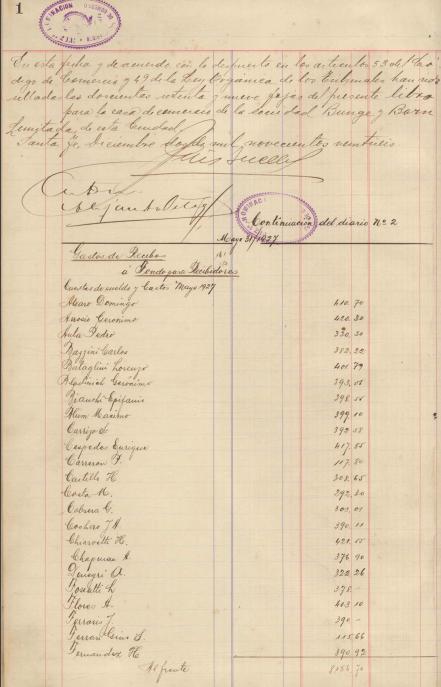 1
En esta fecha y de acuerdo con lo dispuesto en los articulos 53 del Co
digo de Comercio y 49 de la Ley Orgánica de los Tribunales han
las doscientas setenta y nueve fojas del presente libro
para la casa de comercio de la Sociedad Bunge y Born
Limitada, de esta Ciudad.
Santa Fe, Diciembre dos de mil novecientos veintitres
Continuación del diario Nº 2
Mayo 31/1927
Gastos de Recibos
á Fondo para Recibidores
Cuentas de sueldo y Gastos Mayo 1927
Alvaro Domingo 410,70
Geronimo 420,80
Aula Pedro 330,30
Bazzini Carlos 382,22
Bataglini Lorenzo 401,79
Gerónimo 393,05
Bianchi Epifanio 398,55
Blum Maximo 399,10
Carrizo S. 392,58
Cespedes Enrique 417,85
Carreron P. 117,80
Castillo H 308,65
Costa M. 392,80
Cabrera G. 301,01
Cochero J A. 390,11
Chiarvetti H. 421,55
Chapman A. 376,90
Denegri A. 322,26
L 378,-
Flores A. 403,10
Ferraris J. 390,-
S. 115,66
Fernandez H 390,92
Al frente 8154,70